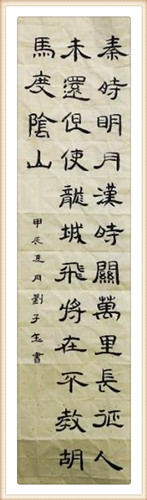 秦時明月漢時關萬里長征人
未還但使龍城飛將在不教胡
馬度陰山
甲辰夏月劉子玉書